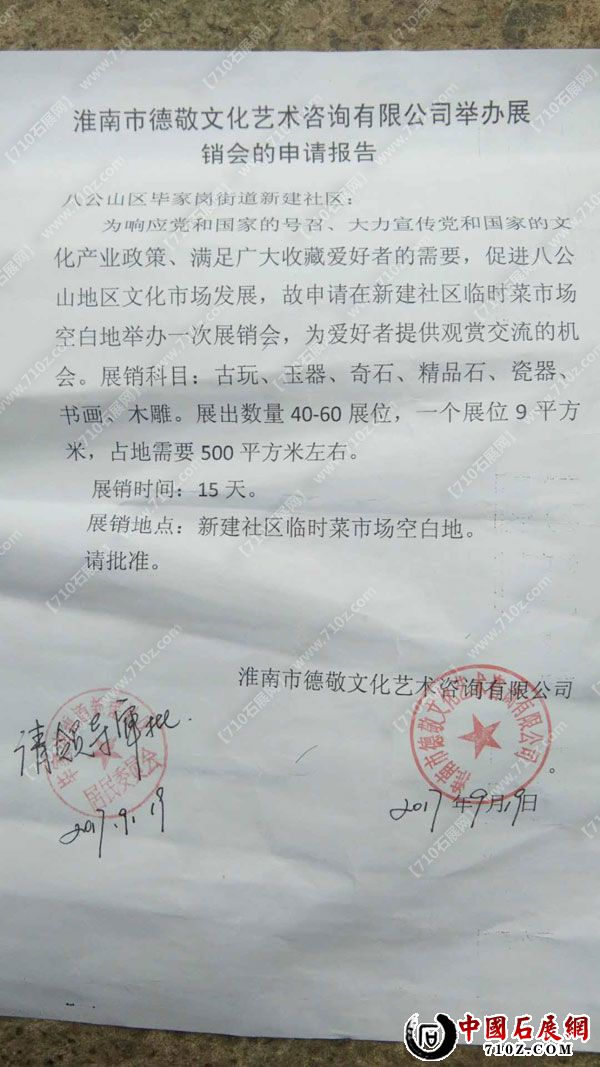 淮南市德敬文化艺术咨询有限公司举办展
销会的申请报告
八公山区毕家岗街道新建社区：
为响应党和国家的号召、大力宣传党和国家的文
化产业政策、满足广大收藏爱好者的需要，促进八公
山地区文化市场发展，故申请在新建社区临时菜市场
空白地举办一次展销会，为爱好者提供观赏交流的机
会。展销科目：古玩、玉器、奇石、精品石、瓷器、
书画、木雕。展出数量 40-60 展位，一个展位 9 平方
米，占地需要 500 平方米左右。
展销时间：15 天。
展销地点：新建社区临时菜市场空白地。
请批准。
淮南市德敬文化艺术咨询有限公司
淮南市德敬文化艺术咨询有限公司
请领导审批.
居民委员会
2017.9.19
2017年9月19日
【710石展网】
www.710z.com
中國石展網
710Z.COM